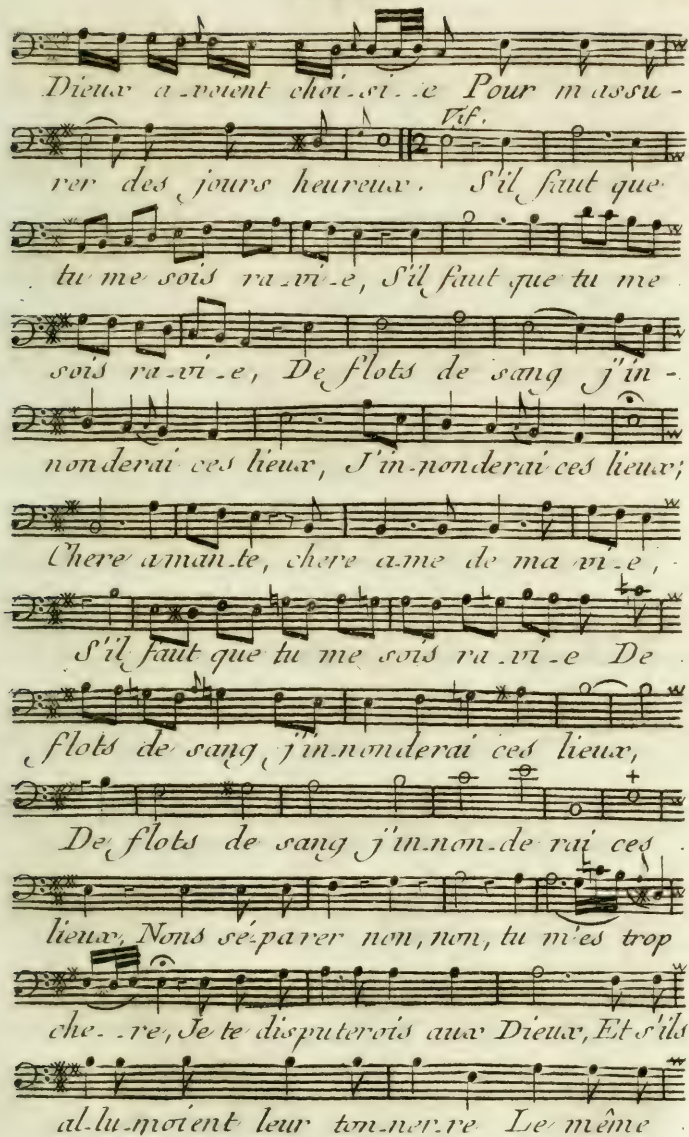 Dieux a-voient choi-si--e Pour m'assu-
Vif.
2
rer des jours heureux. S'il faut que
tu me sois ra-vi-e, S'il faut que tu me
sois ra-vi-e, De flots de sang j'in-
nonderai ces lieux, J'in-nonderai ces lieux;
Chere aman-te, chere a-me de ma vi-e,
S'il faut que tu me sois ra-vi-e De
flots de sang j'in-nonderai ces lieux,
De flots de sang j'in-non-de rai ces
lieux, Nons sé-parer non, non, tu m'es trop
che--re, Je te disputerois aux Dieux, Et s'ils
al-lu-moient leur ton-ner-re Le même